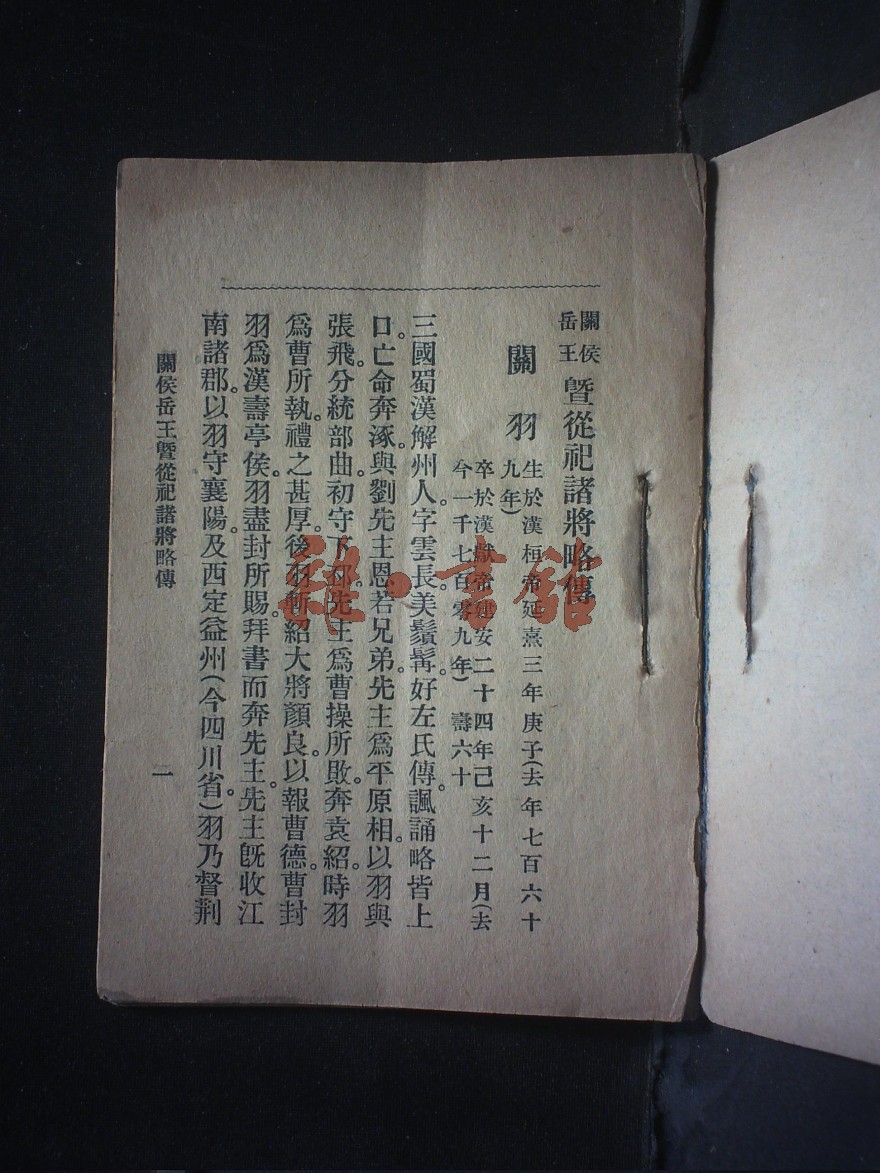 關侯岳王暨從祀諸將略傳
關羽
生於漢桓帝延熹三年庚子(去年七百六十
九年)
卒於漢獻帝建安二十四年己亥十二月(去
今一千七百零九年) 壽六十
三國蜀漢解州人。字雲長。美鬚髯。好左氏傳。諷誦略皆上
口。亡命奔涿。與劉先主恩若兄弟。先主爲平原相。以羽與
張飛。分統部曲。初守下邳。先主爲曹操所敗。奔袁紹。時羽
爲曹所執。禮之甚厚。後羽斬紹大將顏良。以報曹德。曹封
羽爲漢壽亭侯。羽盡封所賜。拜書而奔先主。先主旣收江
南諸郡。以羽守襄陽。及西定益州(今四川省)羽乃督荆
關侯岳王暨從祀諸將略傳
一
書館